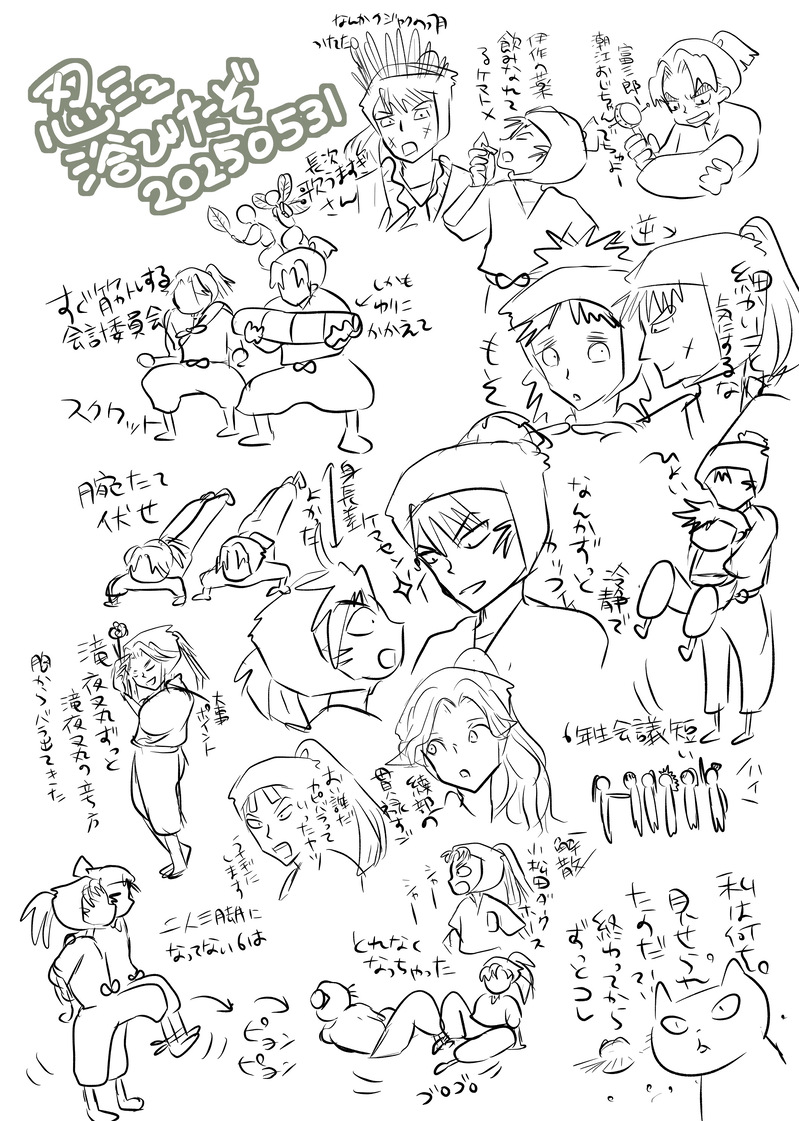 忍ミュ
浴びたぞ
20250531
なんかクジャクの羽
つれてた
伊作の薬
飲みなれて
るケマトメ
富三郎ー
潮江おじちゃんでちゅよー
長次
歌うますぎ
さん
逆→
細かい
気にするな
もそ
すぐ筋トレする
会計委員会
しかも
ゆりに
かかえて
スクワット
腕たて
伏せ
身長差ケマセン
よかた
なんかずっと
冷静で
6年生会議短い
ハイ
解散
滝夜叉丸ずっと
滝夜叉丸の立ち方
胸からバラ出てきた
大事
ポイント
おい誰だ
カピバラって
いったヤツ
綾部の
貫禄すご
小松田ダックス
ホールス
二人三脚に
なってない6は
とれなく
なっちゃった
ピョン
ピョン
ゴロゴロ
私は何を。
見せられ
たのだ…。
終わってから
ずっとコレ